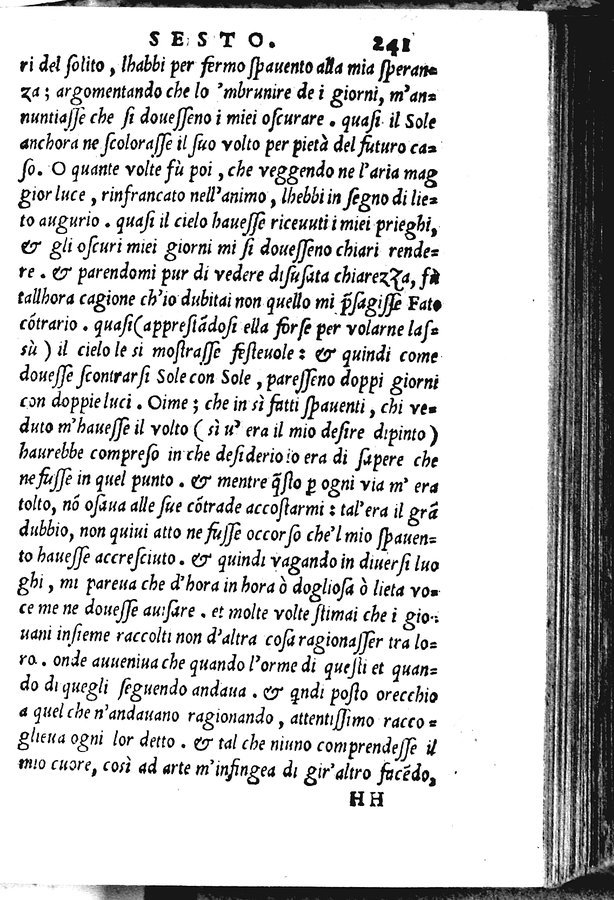 SESTO. 241
ri del ſolito, lhabbi per fermo ſpauento alla mia ſperan=
za; argomentando che lo 'mbrunire de i giorni, m'an=
nuntiaſſe che ſi doueſſeno i miei oſcurare. quaſi il Sole
anchora ne ſcoloraſſe il ſuo volto per pietà del futuro ca=
ſo. O quante volte fù poi, che veggendo ne l'aria mag
gior luce, rinfrancato nell'animo, lhebbi in ſegno di lie=
to augurio. quaſi il cielo haueſſe riceuuti i miei prieghi,
& gli oſcuri miei giorni mi ſi doueſſeno chiari rende=
re. & parendomi pur di vedere diſuſata chiarezza, fù
tallhora cagione ch'io dubitai non quello mi p̃ſagiſſe Fato
cõtrario. quaſi (appreſtãdoſi ella forſe per volarne laſ=
ſù) il cielo le ſi moſtraſſe feſteuole: & quindi come
doueſſe ſcontrarſi Sole con Sole, pareſſeno doppi giorni
con doppie luci. Oime; che in sì fatti ſpauenti, chi ve=
duto m'haueſſe il volto (sì u' era il mio deſire dipinto)
haurebbe compreſo in che deſiderio io era di ſapere che
ne fuſſe in quel punto. & mentre q̃ſto ꝑ ogni via m' era
tolto, nõ oſaua alle ſue cõtrade accoſtarmi: tal'era il grã
dubbio, non quiui atto ne fuſſe occorſo che'l mio ſpauen=
to haueſſe accreſciuto. & quindi vagando in diuerſi luo
ghi, mi pareua che d'hora in hora ò doglioſa ò lieta vo=
ce me ne doueſſe auiſare. et molte volte ſtimai che i gio=
uani inſieme raccolti non d'altra coſa ragionaſſer tra lo=
ro. onde auueniua che quando l'orme di queſti et quan=
do di quegli ſeguendo andaua. & q̃ndi poſto orecchio
a quel che n'andauano ragionando, attentiſſimo racco=
glieua ogni lor detto. & tal che niuno comprendeſſe il
mio cuore, così ad arte m'infingea di gir'altro facẽdo,
HH